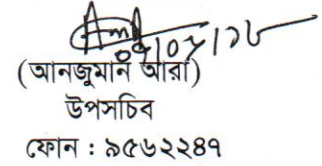 (আনজুমান আরা)
উপসচিব
ফোন : ৯৫৬২২৪৭